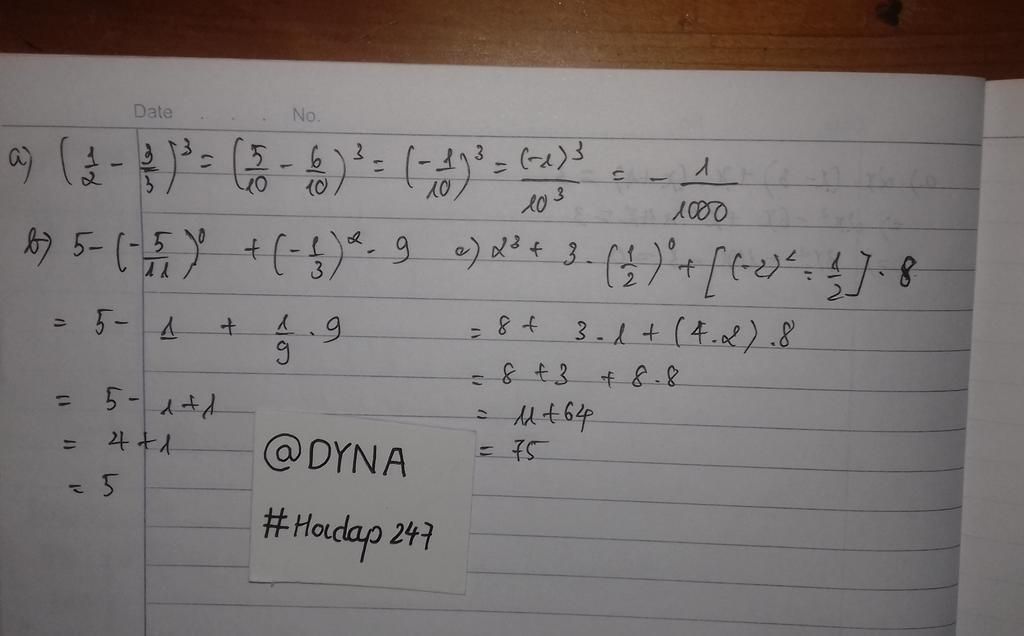 Date . . . No.
a) (1/2 - 3/3)^3 = (5/10 - 6/10)^3 = (-1/10)^3 = (-1)^3/10^3 = - 1/1000
b) 5 - (-5/11)^0 + (-1/3)^2 . 9
= 5 - 1 + 1/9 . 9
= 5 - 1 + 1
= 4 + 1
= 5
c) 2^3 + 3 . (1/2)^0 + [(-2)^2 : 1/2] . 8
= 8 + 3 . 1 + (4 . 2) . 8
= 8 + 3 + 8 . 8
= 11 + 64
= 75
@DYNA
#Hoidap247